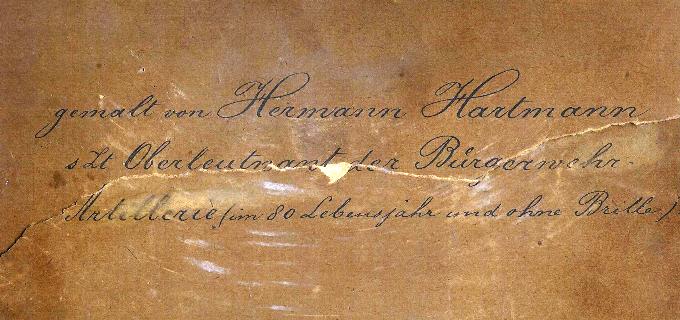 gemalt von Hermann Hartmann
s Zt Oberleutnant der Bürgerwehr-
Artillerie (im 80 Lebensjahr und ohne Brille)